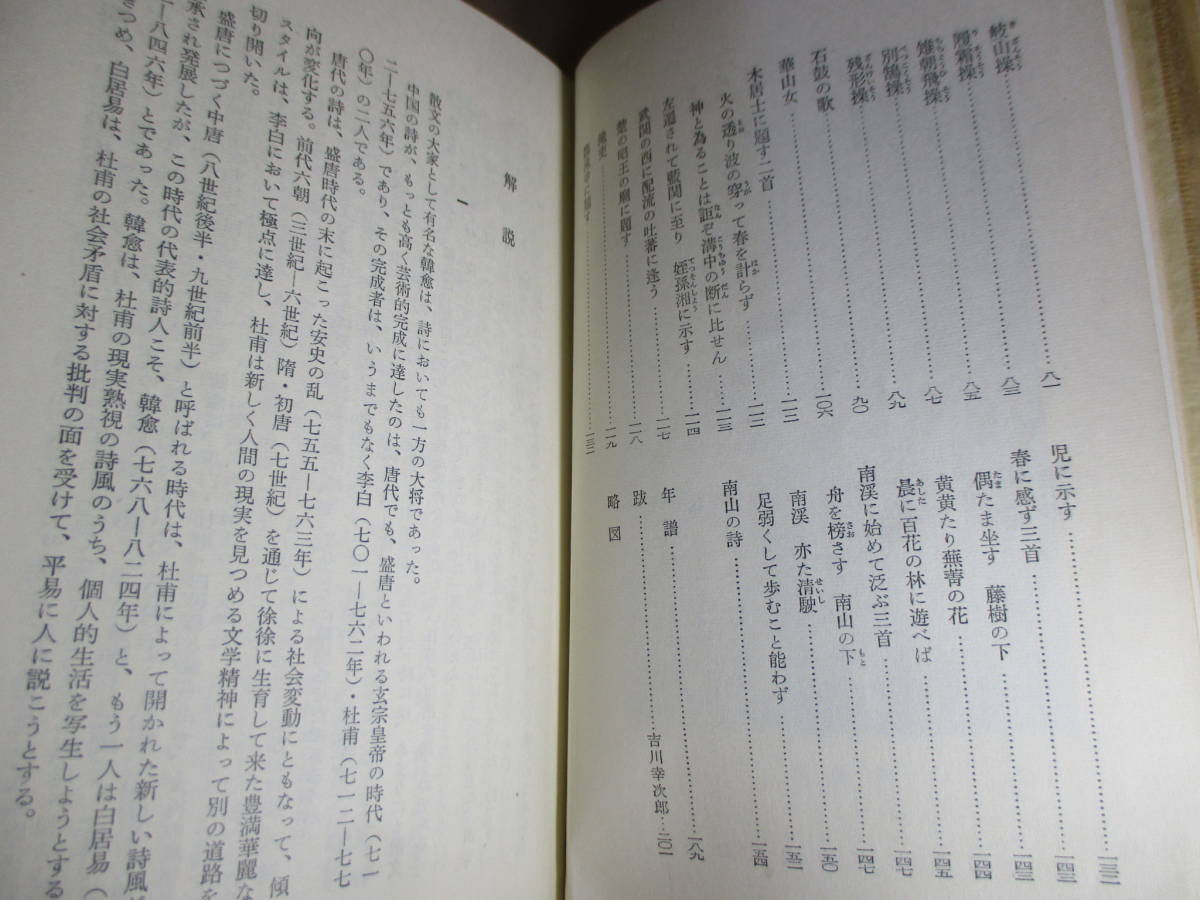 岐山操……八一
履霜操……八三
雉朝飛操……八五
別鵠操……八七
残形操……八九
石鼓の歌……九〇
華山女……一〇六
木居士に題す二首……一一二
火の透り波の穿って春を計らず……一一二
神と為ることは詎ぞ溝中の断に比せん……一一三
左遷されて藍関に至り 姪孫湘に示す……一一四
武関の西に配流の吐蕃に逢う……一一七
楚の昭王の廟に題す……一一八
滝吏……一一九
児に示す……一三二
春に感ず三首……一四三
偶たま坐す 藤樹の下……一四三
黄黄たり蕪菁の花……一四四
晨に百花の林に遊べば……一四五
南渓に始めて泛ぶ三首……一四七
舟を榜さす 南山の下……一四七
南渓 亦た清駛……一五〇
足弱くして歩むこと能わず……一五二
南山の詩……一五四
年譜……一八九
跋……吉川幸次郎…二〇一
略図
解説
一
散文の大家として有名な韓愈は、詩においても一方の大将であった。
中国の詩が、もっとも高く芸術的完成に達したのは、唐代でも、盛唐といわれる玄宗皇帝の時代（七一
二―七五六年）であり、その完成者は、いうまでもなく李白（七〇一―七六二年）・杜甫（七一二―七七
〇年）の二人である。
唐代の詩は、盛唐時代の末に起こった安史の乱（七五五―七六三年）による社会変動にともなって、傾
向が変化する。前代六朝（三世紀―六世紀）隋・初唐（七世紀）を通じて徐徐に生育して来た豊満華麗な
スタイルは、李白において極点に達し、杜甫は新しく人間の現実を見つめる文学精神によって別の道路を
切り開いた。
盛唐につづく中唐（八世紀後半・九世紀前半）と呼ばれる時代は、杜甫によって開かれた新しい詩風
承され発展したが、この時代の代表的詩人こそ、韓愈（七六八―八二四年）と、もう一人は白居易（
―八四六年）とであった。韓愈は、杜甫の現実熟視の詩風のうち、個人的生活を写生しようとする
つめ、白居易は、杜甫の社会矛盾に対する批判の面を受けて、平易に人に説こうとする。